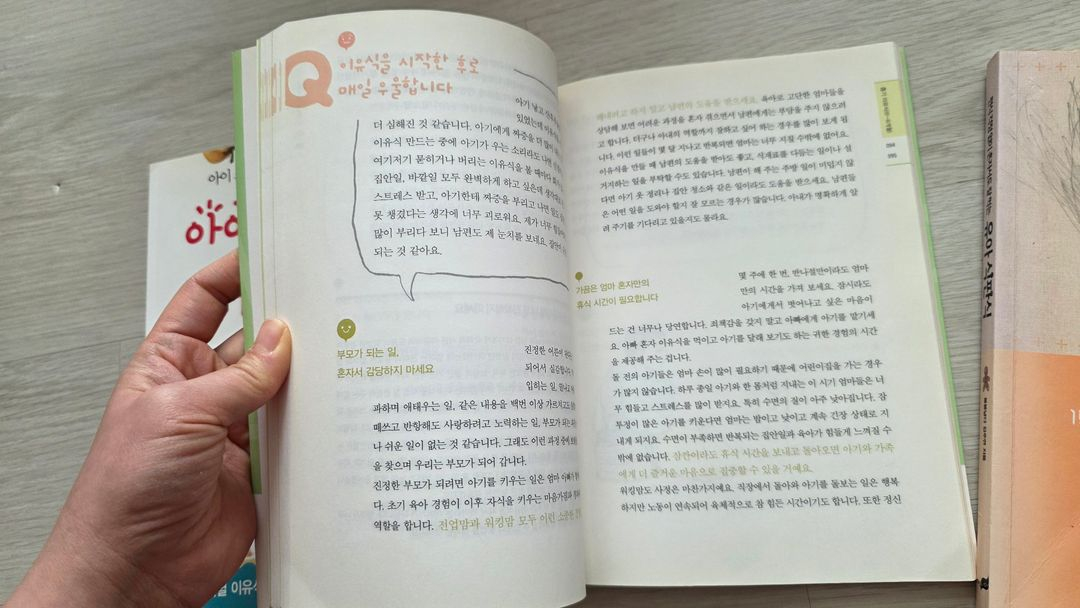 Q
이유식을 시작한 후로
매일 우울합니다
아기 낳고
있었는데
더 심해진 것 같습니다. 아기에게 짜증을 더 많이
이유식 만드는 중에 아기가 우는 소리라도 나면
여기저기 묻히거나 버리는 이유식을 볼 때마다
집안일, 바깥일 모두 완벽하게 하고 싶은데
스트레스 받고, 아기한테 짜증을 부리고 나면
못 챙겼다는 생각에 너무 괴로워요. 제가 너무
많이 부리다 보니 남편도 제 눈치를 보네요.
되는 것 같아요.
부모가 되는 일,
혼자서 감당하지 마세요
진정한 어른이
되어서 실감합니다
입히는 일,
파하며 애태우는 일, 같은 내용을 백번 이상 가르치고도
떼쓰고 반항해도 사랑하려고 노력하는 일, 부모가 되는
나 쉬운 일이 없는 것 같습니다. 그래도 이런 과정 중에
을 찾으며 우리는 부모가 되어 갑니다.
진정한 부모가 되려면 아기를 키우는 일은 엄마 아빠가
다. 초기 육아 경험이 이후 자식을 키우는 마음가짐과
역할을 합니다. 전업맘과 워킹맘 모두 이런 소중한
해내려고 하지 말고 남편의 도움을 받으세요. 육아로 고단한 엄마들을
상담해 보면 어려운 과정을 혼자 겪으면서 남편에게는 부담을 주지 않으려
고 합니다. 더구나 아내의 역할까지 잘하고 싶어 하는 경우를 많이 보게 됩
니다. 이런 일들이 몇 달 지나고 반복되면 엄마는 너무 지칠 수밖에 없어요.
이유식을 만들 때 남편의 도움을 받아도 좋고, 식재료를 다듬는 일이나 설
거지하는 일을 부탁할 수도 있습니다. 남편이 해 주는 주방 일이 미덥지 않
다면 아기 옷 정리나 집안 청소와 같은 일이라도 도움을 받으세요. 남편들
은 어떤 일을 도와야 할지 잘 모르는 경우가 많습니다. 아내가 명확하게 알
려 주기를 기다리고 있을지도 몰라요.
가끔은 엄마 혼자만의
휴식 시간이 필요합니다
몇 주에 한 번, 반나절만이라도 엄마
만의 시간을 가져 보세요. 잠시라도
아기에게서 벗어나고 싶은 마음이
드는 건 너무나 당연합니다. 죄책감을 갖지 말고 아빠에게 아기를 맡기세
요. 아빠 혼자 이유식을 먹이고 아기를 달래 보기도 하는 귀한 경험의 시간
을 제공해 주는 겁니다.
돌 전의 아기들은 엄마 손이 많이 필요하기 때문에 어린이집을 가는 경우
가 많지 않습니다. 하루 종일 아기와 한 몸처럼 지내는 이 시기 엄마들은 너
무 힘들고 스트레스를 많이 받지요. 특히 수면의 질이 아주 낮아집니다. 잠
투정이 많은 아기를 키운다면 엄마는 밤이고 낮이고 계속 긴장 상태로 지
내게 되지요. 수면이 부족하면 반복되는 집안일과 육아가 힘들게 느껴질 수
밖에 없습니다. 잠깐이라도 휴식 시간을 보내고 돌아오면 아기와 가족
에게 더 즐거운 마음으로 집중할 수 있을 거예요.
워킹맘도 사정은 마찬가지예요. 직장에서 돌아와 아기를 돌보는 일은 행복
하지만 노동이 연속되어 육체적으로 참 힘든 시간이기도 합니다. 또한 정신
유아식판식